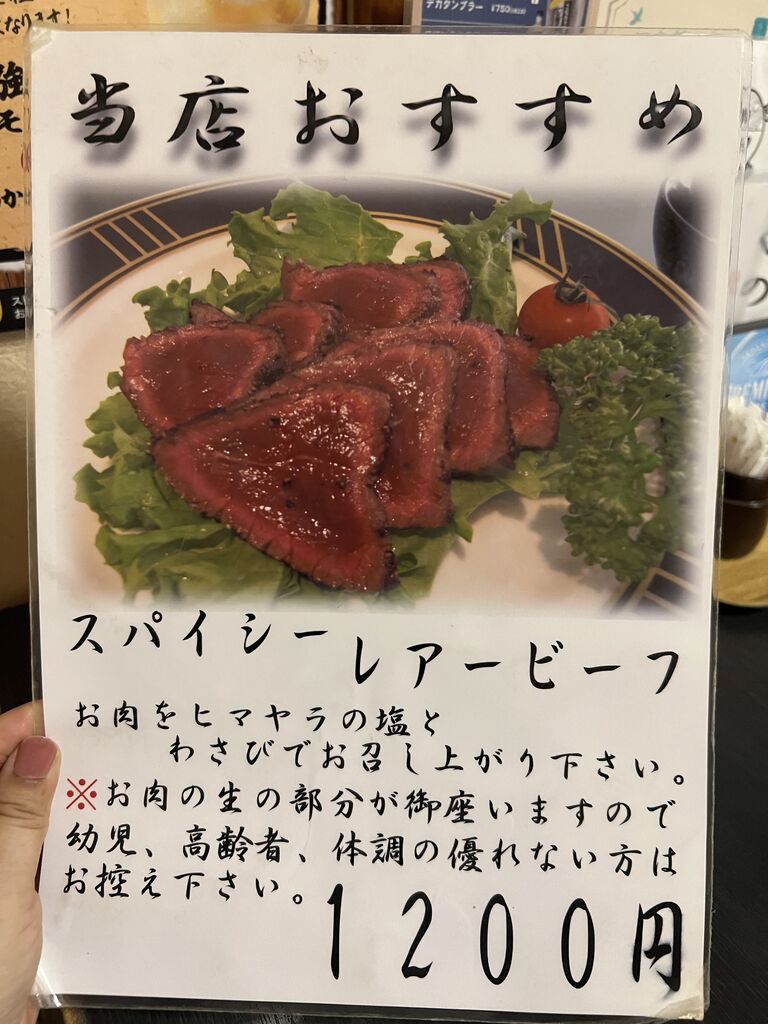 デカタンブラー ¥750
なります!
強
モ
か
当店おすすめ
スパイシーレアービーフ
お肉をヒマヤラの塩と
わさびでお召し上がり下さい。
※お肉の生の部分が御座いますので
幼児、高齢者、体調の優れない方は
お控え下さい。
1200円